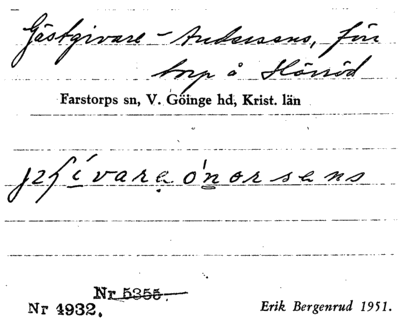 Gästgivare-Anderssens, för
torp å Hörröd
Farstorps sn, V. Göinge hd, Krist. län
ivare ónorsens
Nr 5355.
Nr 4932.
Erik Bergenrud 1951.